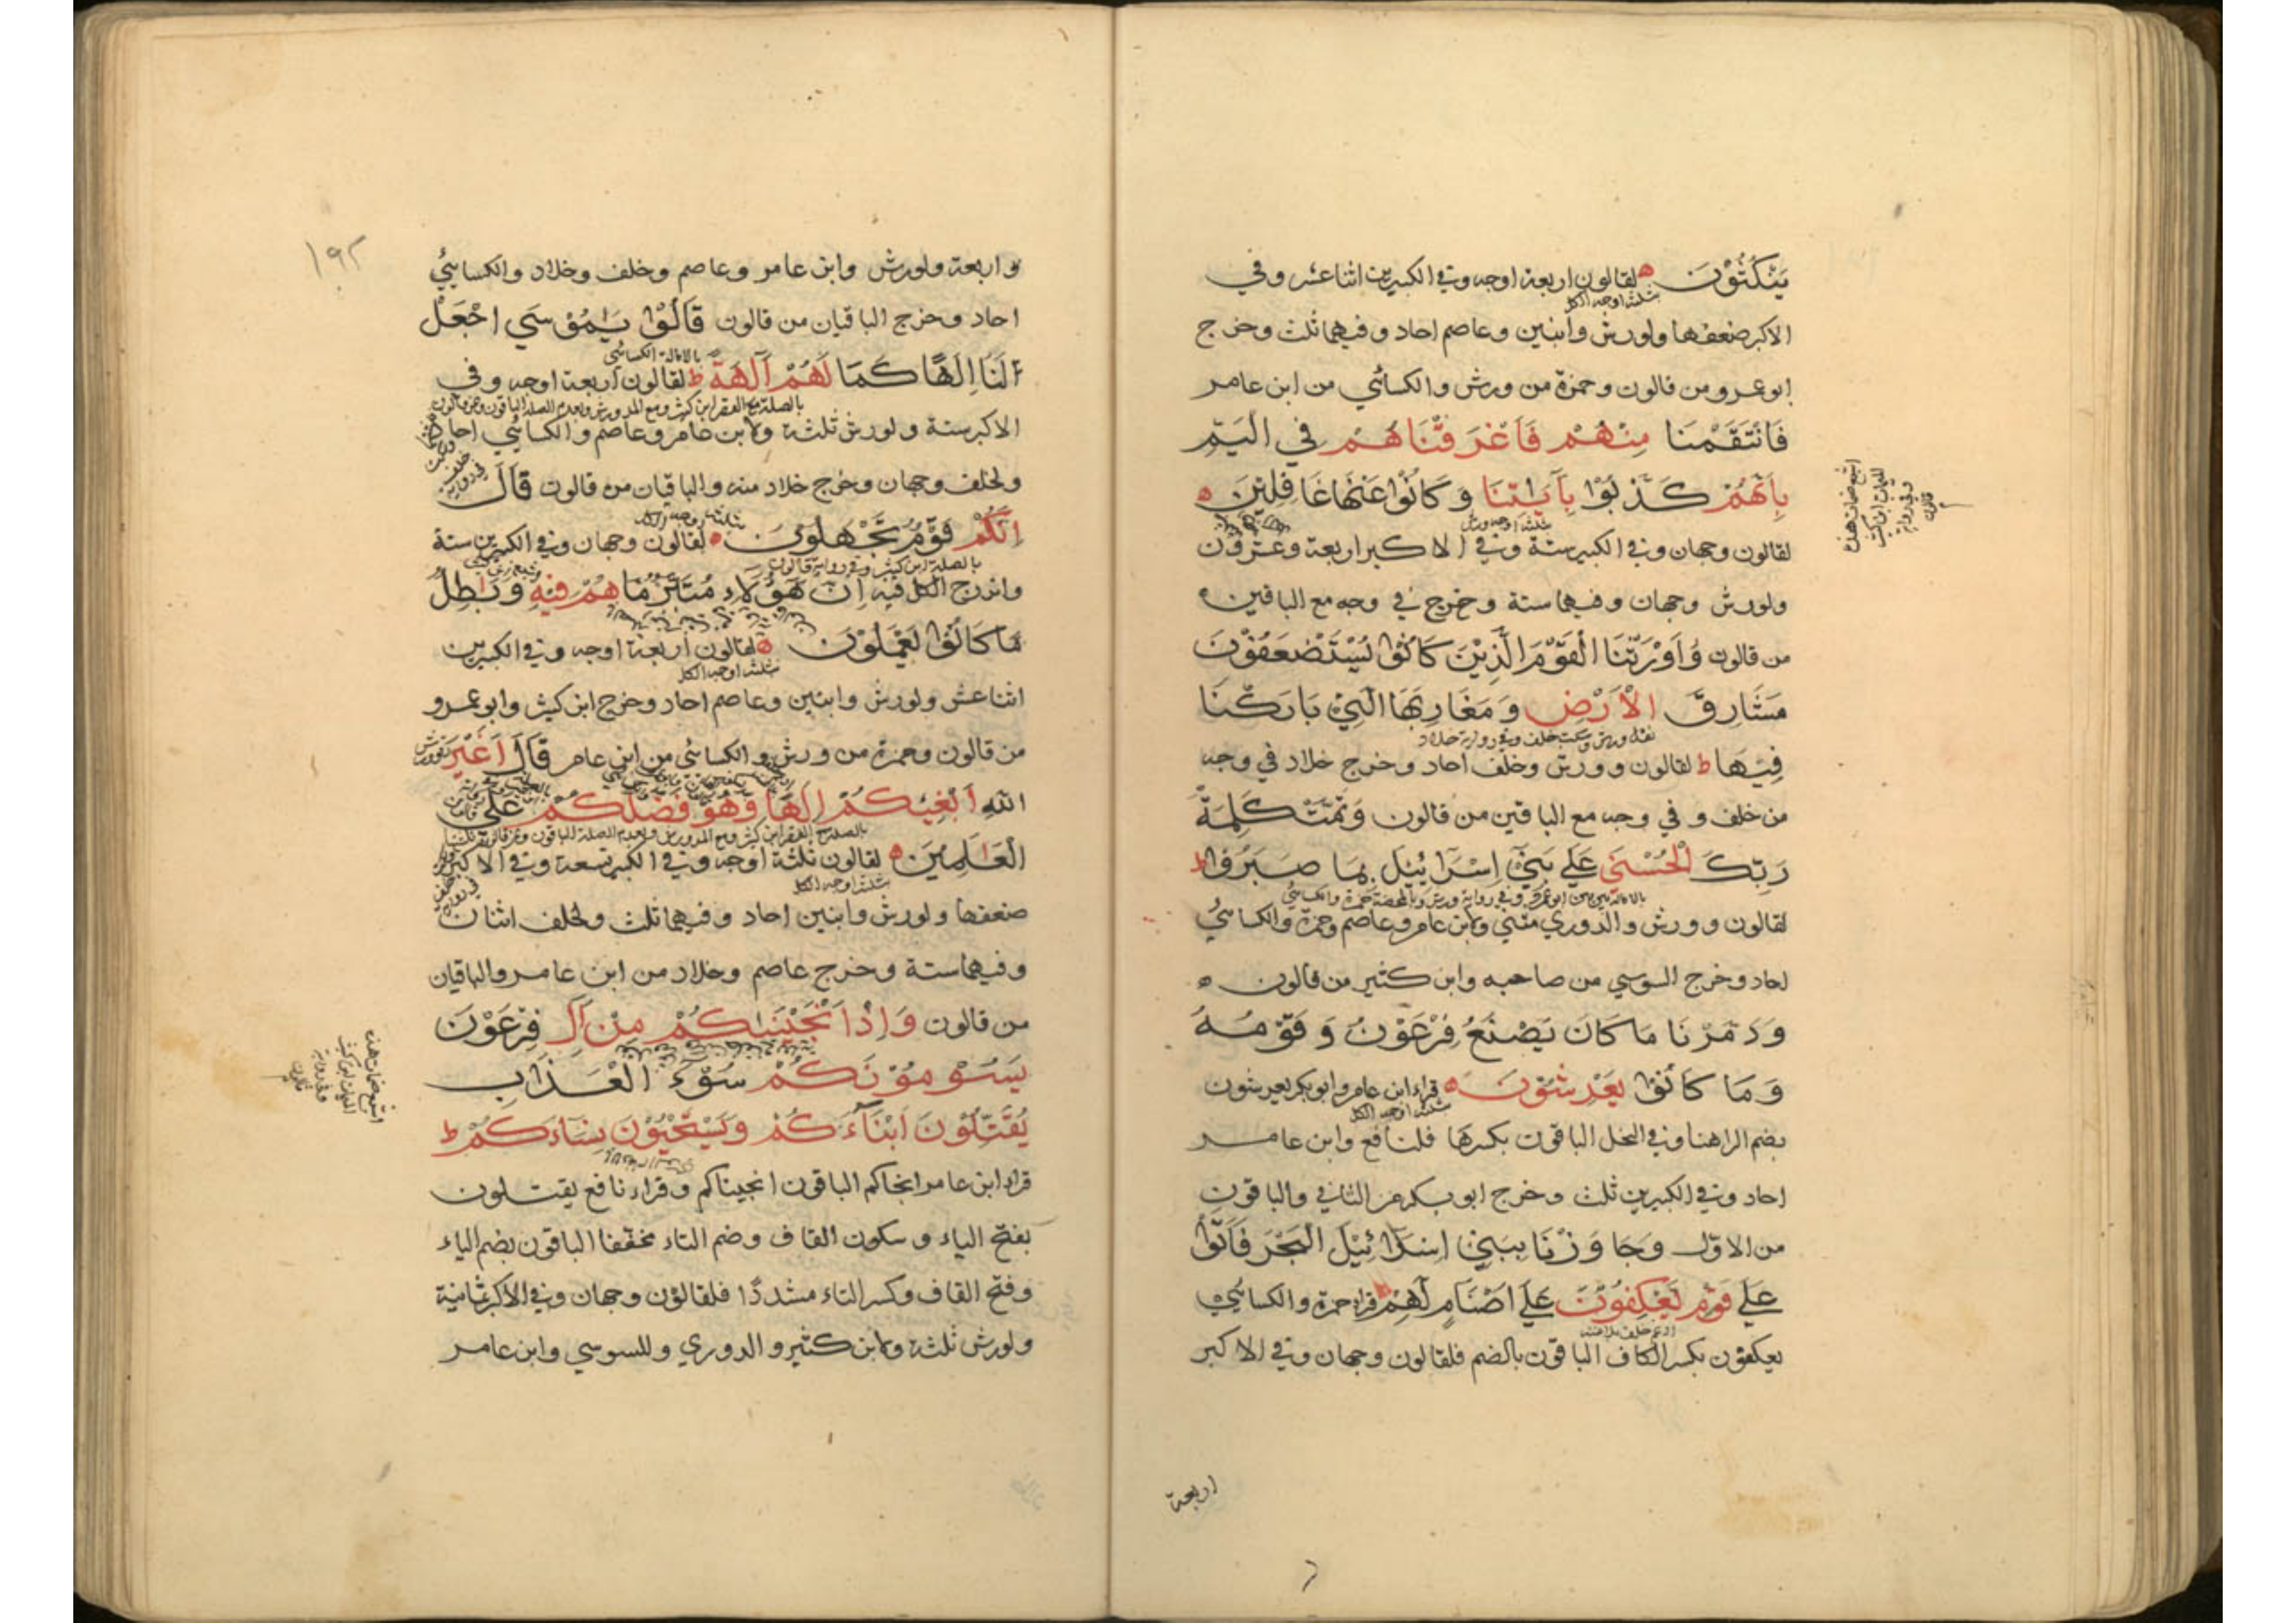 يَنْكُثُوْنَ ه لقالون اربعة اوجه وفي الكبيرين اثنا عشر وفي
ثلثة اوجه الكل
الاكبر ضعفها ولورش وابنين وعاصم احاد وفيهما ثلث وخرج
ابو عمرو من قالون وحمزة من ورش والكسائي من ابن عامر
فَانْتَقَمْنَا مِنْهُمْ فَاَغْرَقْنَاهُمْ فِي الْيَمِّ
بِاَنَّهُمْ كَذَّبُوْا بِآيَاتِنَا وَكَانُوْا عَنْهَا غَافِلِيْنَ ه
ثلثة اوجه ورش
لقالون وجهان وفي الكبير ستة وفي الاكبر اربعة وعشرون
ولورش وجهان وفيهما ستة وخرج في وجه مع الباقين
من قالون وَاَوْرَثْنَا الْقَوْمَ الَّذِيْنَ كَانُوْا يُسْتَضْعَفُوْنَ
مَشَارِقَ الْاَرْضِ وَمَغَارِبَهَا الَّتِيْ بَارَكْنَا
نقل ورش وسكت خلف وفي رواية خلاد
فِيْهَا ط لقالون وورش وخلف احاد وخرج خلاد في وجه
من خلف وفي وجه مع الباقين من قالون وَتَمَّتْ كَلِمَةُ
رَبِّكَ الْحُسْنَى عَلَى بَنِيْ اِسْرَائِيْلَ بِمَا صَبَرُوْا ط
بالامالة بين بين ابو عمرو وفي رواية ورش وبالمحضة حمزة والكسائي
لقالون وورش والدوري مثنى ولابن عامر وعاصم وحمزة والكسائي
احاد وخرج السوسي من صاحبه وابن كثير من قالون ه
وَدَمَّرْنَا مَا كَانَ يَصْنَعُ فِرْعَوْنُ وَقَوْمُهُ
وَمَا كَانُوْا يَعْرِشُوْنَ ه قراء ابن عامر وابو بكر يعرشون
ثلثة اوجه الكل
بضم الراء هنا وفي النحل الباقون بكسرها فلنافع وابن عامر
احاد وفي الكبيرين ثلث وخرج ابو بكر عن الثاني والباقون
من الاول وَجَاوَزْنَا بِبَنِيْ اِسْرَائِيْلَ الْبَحْرَ فَاَتَوْا
عَلَى قَوْمٍ يَعْكِفُوْنَ عَلَى اَصْنَامٍ لَهُمْ قراء حمزة والكسائي
ادغم خلف بلا غنة
يعكفون بكسر الكاف الباقون بالضم فلقالون وجهان وفي الاكبر
اربعة
اشبع ضمات هذه
الميمات ابن كثير
وفي رواية
قالون
١٩٢
واربعة ولورش وابن عامر وعاصم وخلف وخلاد والكسائي
احاد وخرج الباقيان من قالون قَالُوْا يَامُوْسَى اجْعَلْ
لَنَا اِلَهًا كَمَا لَهُمْ آلِهَةٌ ط لقالون اربعة اوجه وفي
بالامالة الكسائي
الاكبر ستة ولورش ثلثة ولابن عامر وعاصم والكسائي احاد
ولخلف وجهان وخرج خلاد منه والباقيان من قالون قَالَ
اِنَّكُمْ قَوْمٌ تَجْهَلُوْنَ ه لقالون وجهان وفي الكبيرين ستة
ثلثة اوجه الكل
بالصلة ابن كثير وفي رواية قالون
واندرج الكل فيه اِنَّ هَؤُلَاءِ مُتَبَّرٌ مَا هُمْ فِيْهِ وَبَاطِلٌ
مَا كَانُوْا يَعْمَلُوْنَ ه لقالون اربعة اوجه وفي الكبيرين
ثلثة اوجه الكل
اثنا عشر ولورش وابنين وعاصم احاد وخرج ابن كثير وابو عمرو
من قالون وحمزة من ورش والكسائي من ابن عامر قَالَ اَغَيْرَ
اللهِ اَبْغِيْكُمْ اِلَهًا وَهُوَ فَضَّلَكُمْ عَلَى
الْعَالَمِيْنَ ه لقالون ثلثة اوجه وفي الكبير تسعة وفي الاكبر
ثلثة اوجه الكل
ضعفها ولورش وابنين احاد وفيهما ثلث ولخلف اثنان
وفيهما ستة وخرج عاصم وخلاد من ابن عامر والباقيان
من قالون وَاِذْ اَنْجَيْنَاكُمْ مِنْ آلِ فِرْعَوْنَ
يَسُوْمُوْنَكُمْ سُوْءَ الْعَذَابِ
يُقَتِّلُوْنَ اَبْنَاءَكُمْ وَيَسْتَحْيُوْنَ نِسَاءَكُمْ ط
قراء ابن عامر انجاكم الباقون انجيناكم وقراء نافع يقتلون
بفتح الياء وسكون القاف وضم التاء مخففا الباقون بضم الياء
وفتح القاف وكسر التاء مشددًا فلقالون وجهان وفي الاكبر ثمانية
ولورش ثلثة ولابن كثير والدوري وللسوسي وابن عامر
اشبع ضمات هذه
الميمات ابن كثير
وفي رواية
قالون